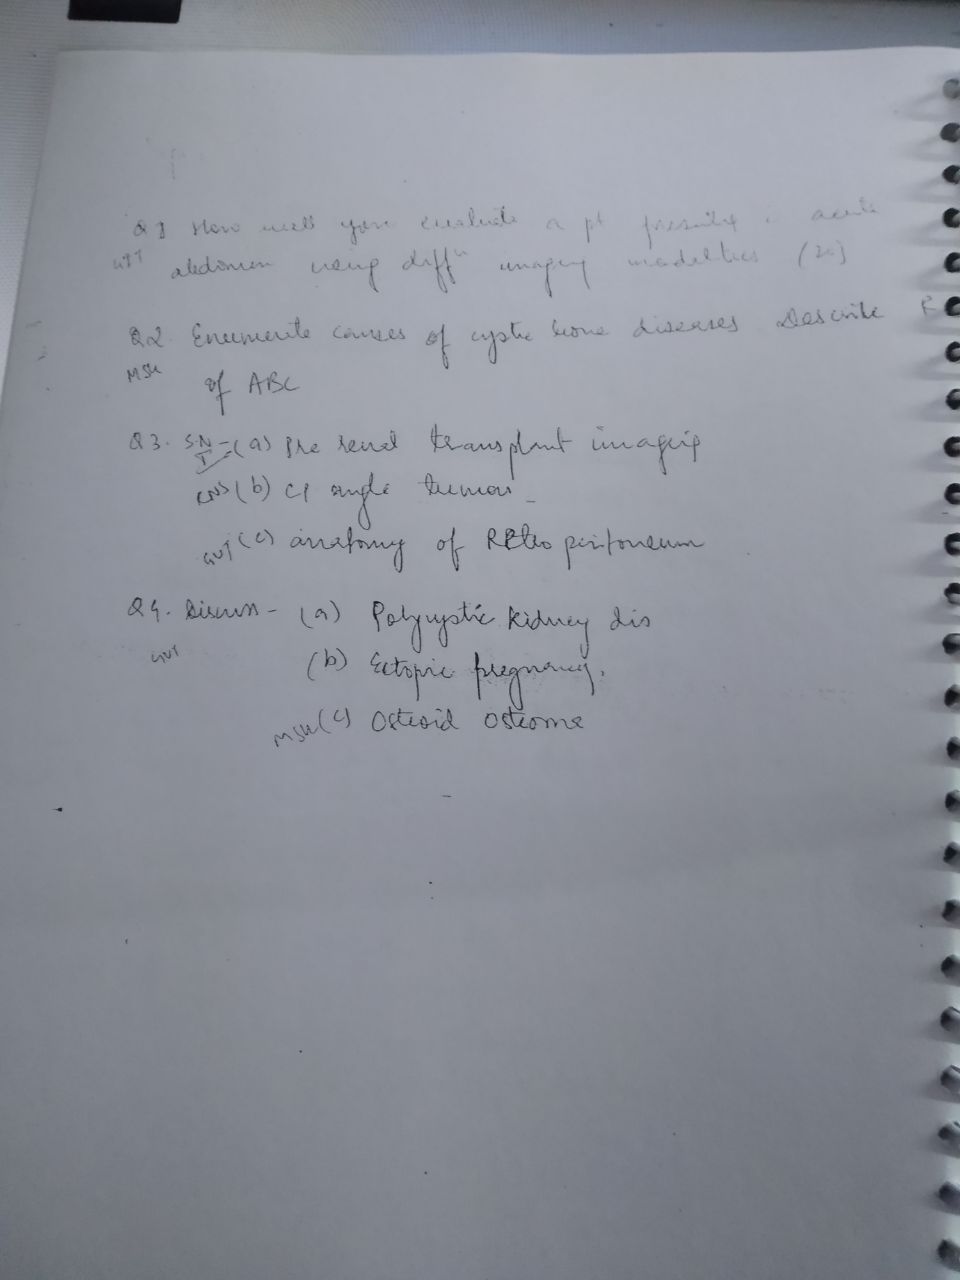 Q1 How will you evaluate a pt presenting c acute
GIT abdomen using diffn imaging modalities
Q2. Enumerate causes of cystic bone diseases Describe R
MSK of ABC
Q3. SN - (a) Pre renal transplant imaging
CNS (b) CP angle tumors
GUT (c) anatomy of REtroperitoneum
Q4. Discuss - (a) Polycystic Kidney dis
GUT (b) Ectopic pregnancy.
MSK (c) Osteoid osteoma